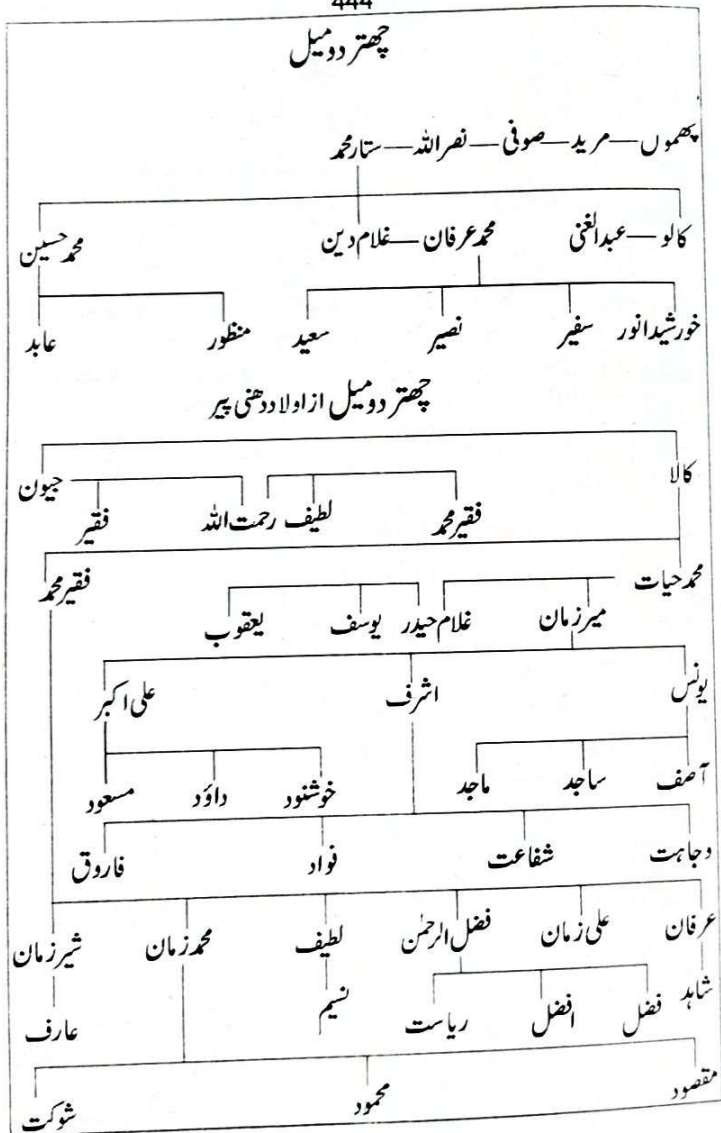 444
چھتر دو میل
پھموں — مرید — صوفی — نصر اللہ — ستار محمد
کالو — عبدالغنی محمد عرفان — غلام دین محمد حسین
خورشید انور سفیر نصیر سعید منظور عابد
چھتر دو میل از اولاد دھنی پیر
کالا جیون
فقیر محمد لطیف رحمت اللہ فقیر
محمد حیات فقیر محمد
میر زمان غلام حیدر یوسف یعقوب
یونس اشرف علی اکبر
آصف ساجد ماجد خوشنود داؤد مسعود
وجاہت شفاعت فواد فاروق
عرفان علی زمان فضل الرحمٰن لطیف محمد زمان شیر زمان
شاہد فضل افضل ریاست نسیم عارف
مقصود محمود شوکت